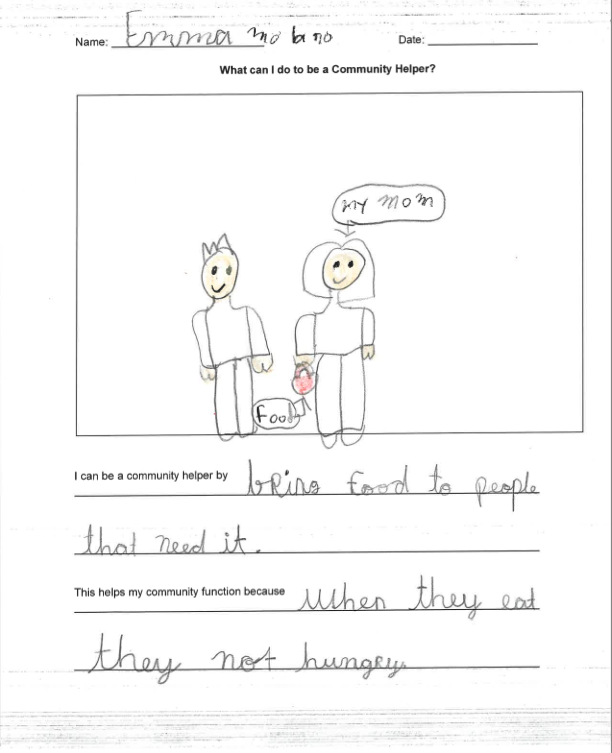 Name: Emma mo ba no Date:
What can I do to be a Community Helper?
my mom
Food
I can be a community helper by bring food to people
that need it.
This helps my community function because when they eat
they not hungry.